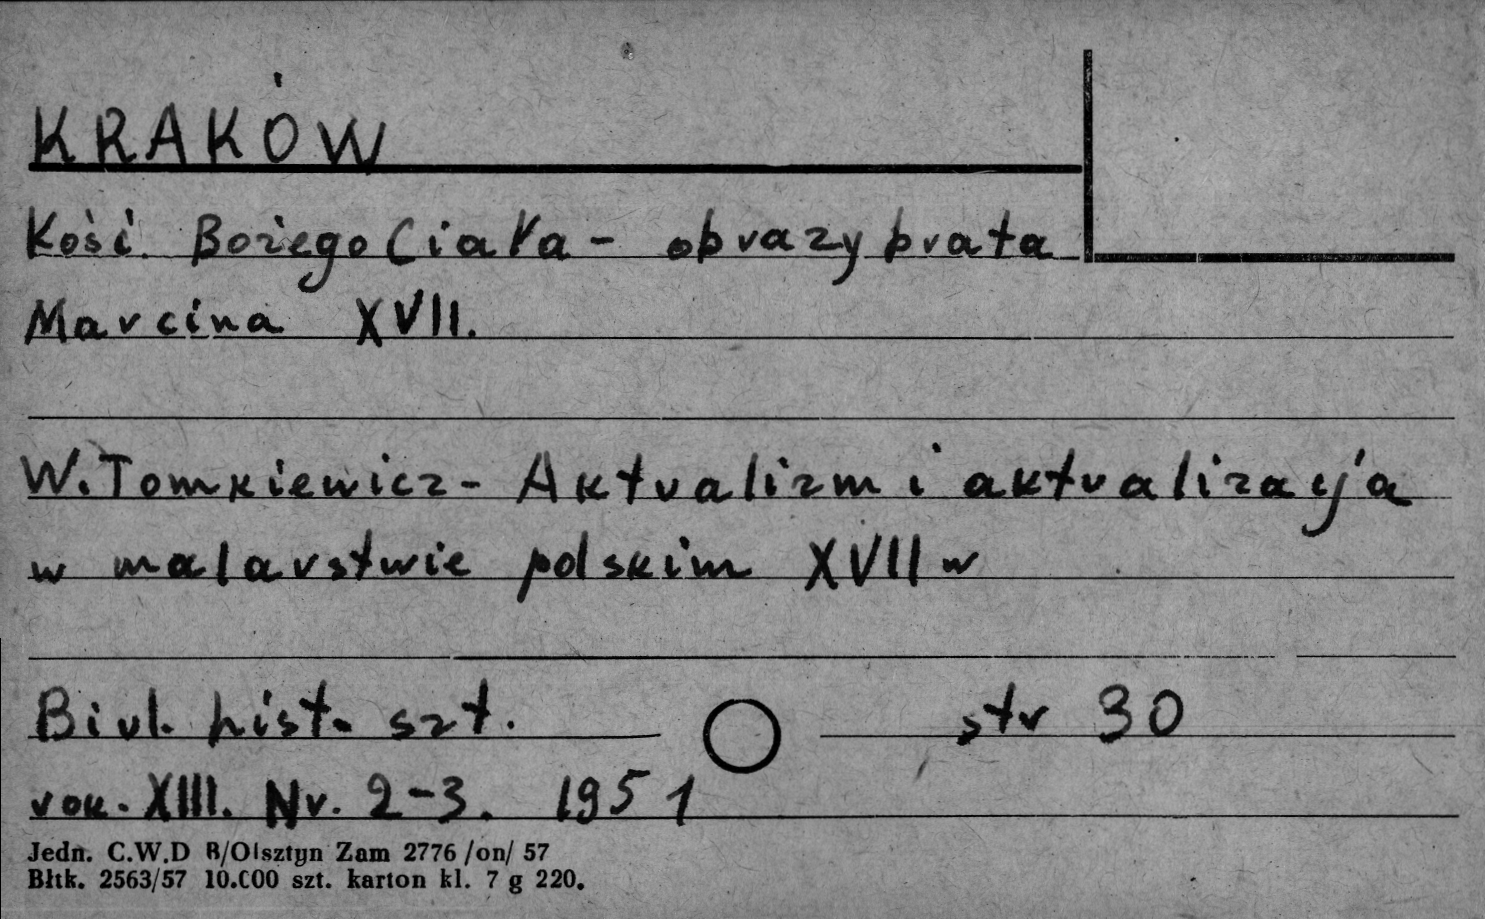 KRAKÓW
Kość. Bożego Ciała - obrazy brata
Marcina XVII.
W. Tomkiewicz - Aktualizm i aktualizacja
w malarstwie polskim XVII w
Biul. hist. szt. str 30
rok. XIII. Nr. 2-3. 1951
Jedn. C.W.D B/Olsztyn Zam 2776 /on/ 57
Błtk. 2563/57 10.000 szt. karton kl. 7 g 220.